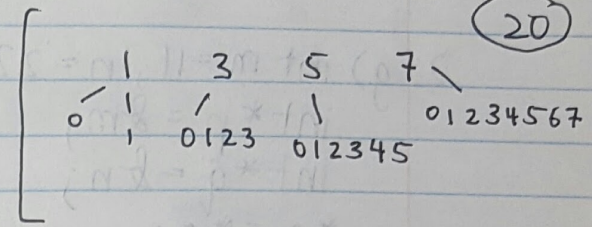 20
1 3 5 7
0 1 0123 012345 01234567